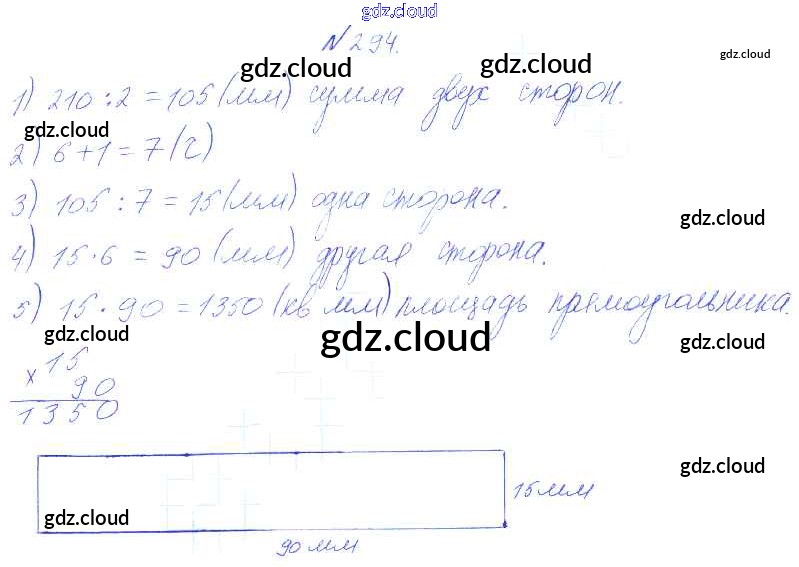 gdz.cloud
№ 294.
gdz.cloud gdz.cloud gdz.cloud
1) 210 : 2 = 105 (мм) сумма двух сторон.
gdz.cloud
2) 6 + 1 = 7 (ч)
3) 105 : 7 = 15 (мм) одна сторона.
gdz.cloud
4) 15 · 6 = 90 (мм) другая сторона.
5) 15 · 90 = 1350 (кв мм) площадь прямоугольника.
gdz.cloud gdz.cloud gdz.cloud
× 15
90
1350
gdz.cloud
15 мм
gdz.cloud
90 мм